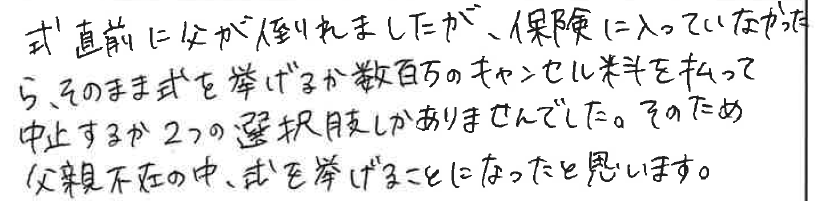 式直前に父が倒れましたが、保険に入っていなかった
ら、そのまま式を挙げるか数百万のキャンセル料を払って
中止するか2つの選択肢しかありませんでした。そのため
父親不在の中、式を挙げることになったと思います。